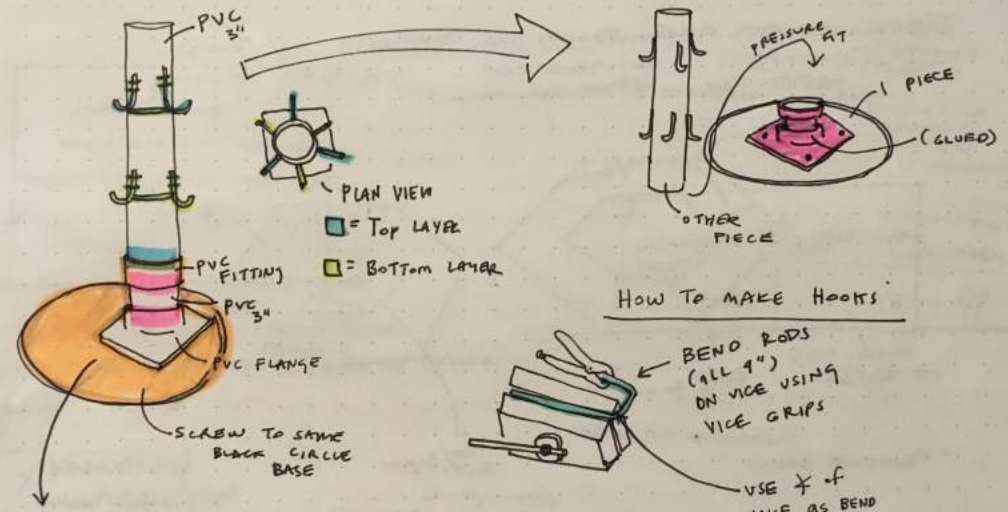 PVC
3"
PLAN VIEW
= TOP LAYER
= BOTTOM LAYER
PVC
FITTING
PVC
3"
PVC FLANGE
SCREW TO SAME
BLACK CIRCLE
BASE
PRESSURE
FIT
1 PIECE
(GLUED)
OTHER
PIECE
HOW TO MAKE HOOKS
BEND RODS
(ALL 4")
ON VICE USING
VICE GRIPS
USE OF
AS BEND